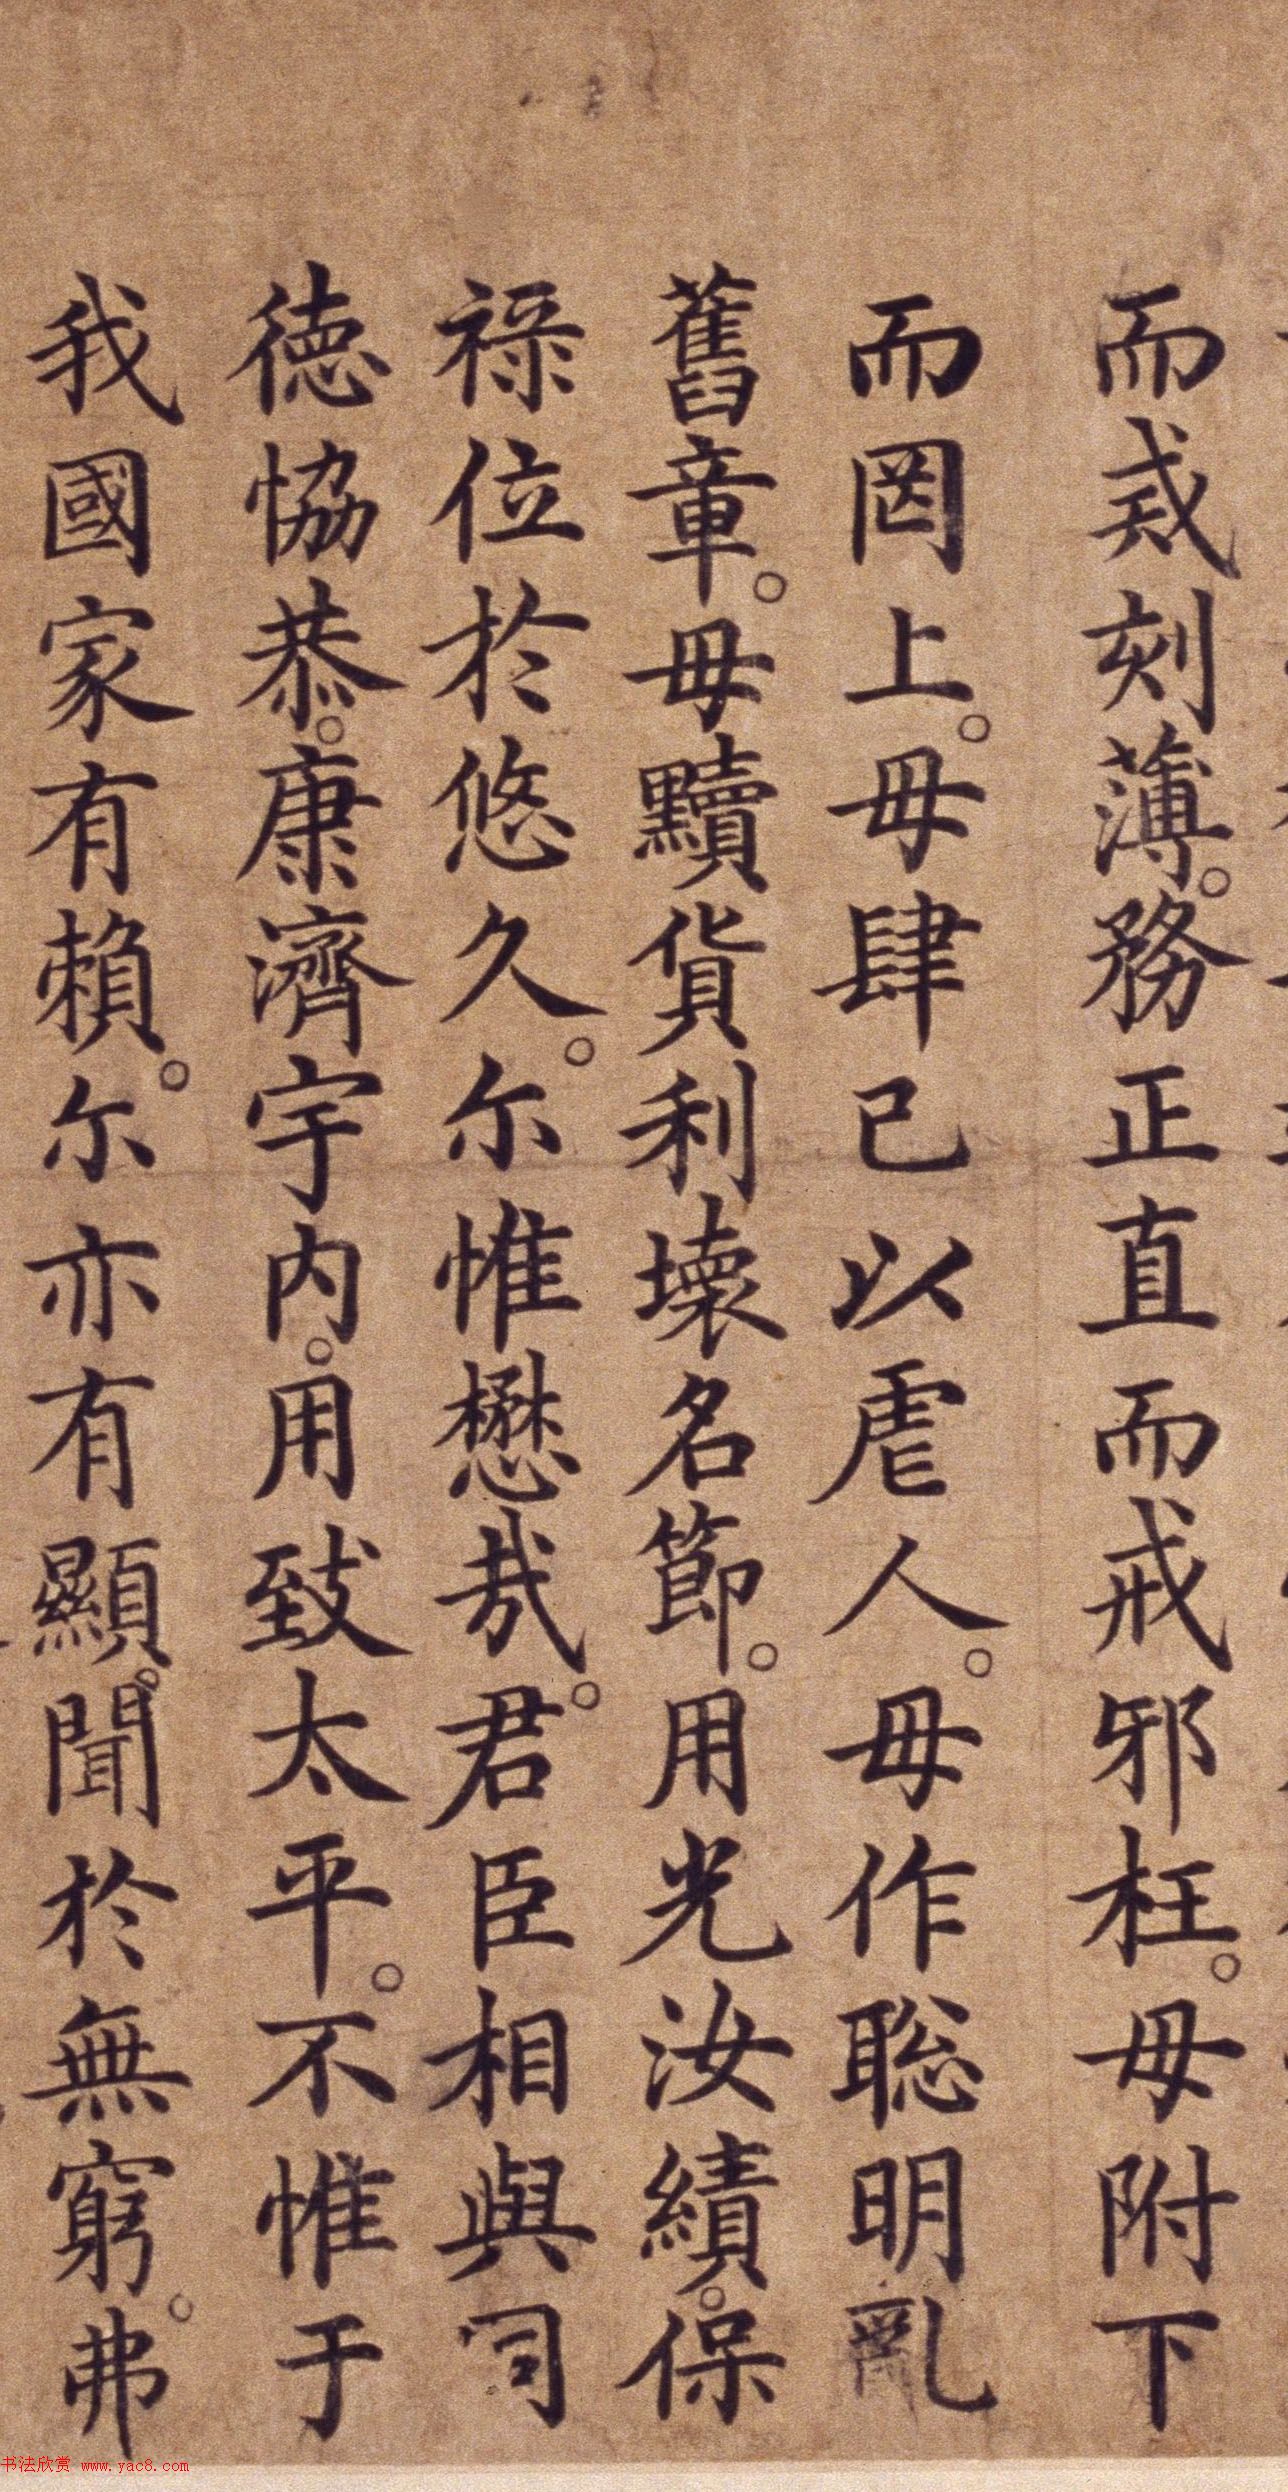 而戒刻薄。務正直而戒邪枉。毋附下
而罔上。毋肆己以虐人。毋作聡明亂
舊章。毋黷貨利壞名節。用光汝績。保
祿位於悠久。尔惟懋哉。君臣相與同
德恊恭。康濟宇内。用致太平。不惟于
我國家有賴。尔亦有顯聞於無窮。弗
书法欣赏 www.yac8.com